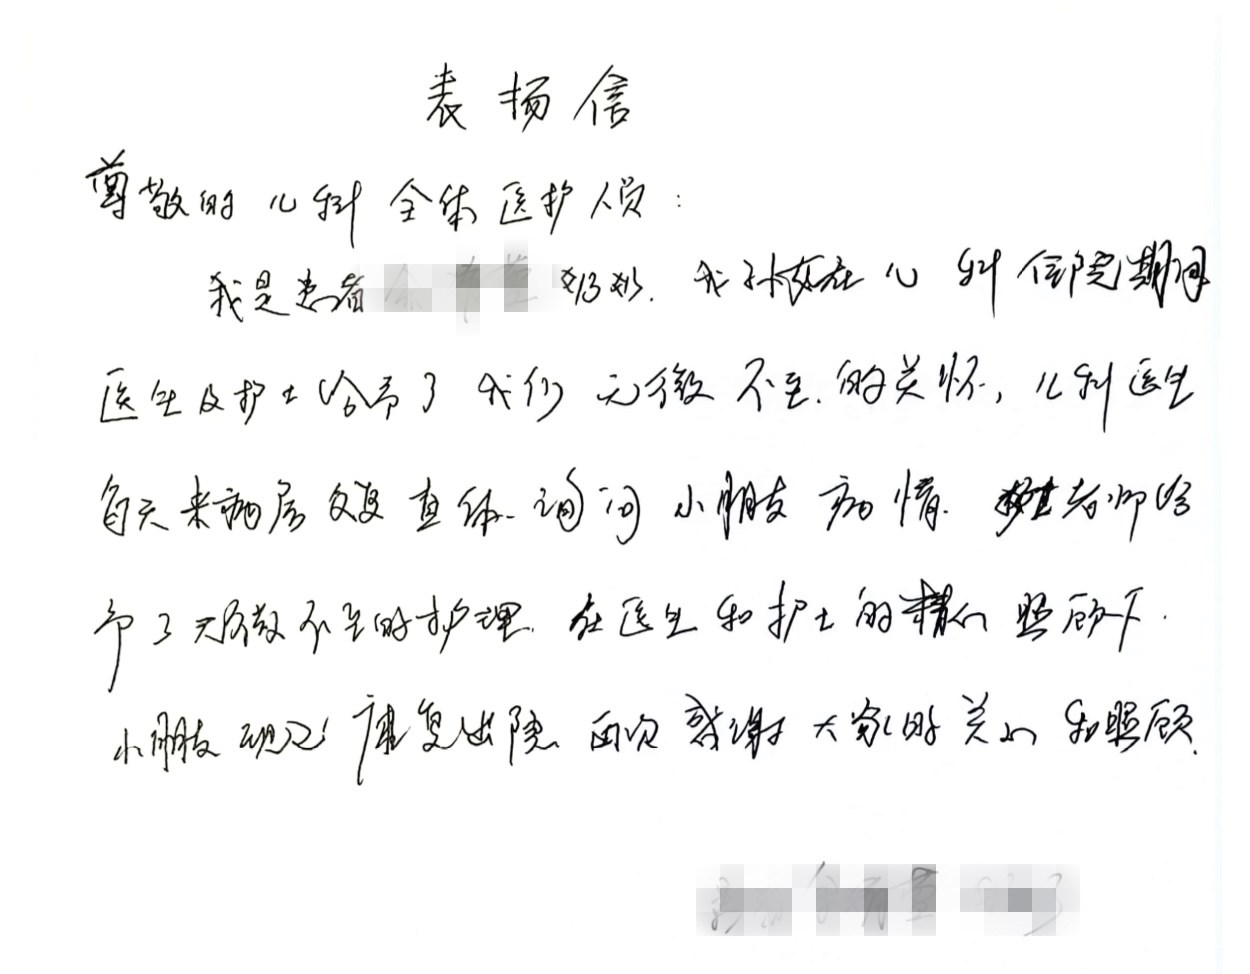 表扬信
尊敬的儿科全体医护人员：
我是患者 奶奶. 我孙女在儿科住院期间
医生及护士给予了我们无微不至.的关怀，儿科医生
每天来病房反复查体.询问小朋友病情. 老师给
予了无微不至的护理. 在医生和护士的精心照顾下.
小朋友现已康复出院 再次感谢大家的关心和照顾.